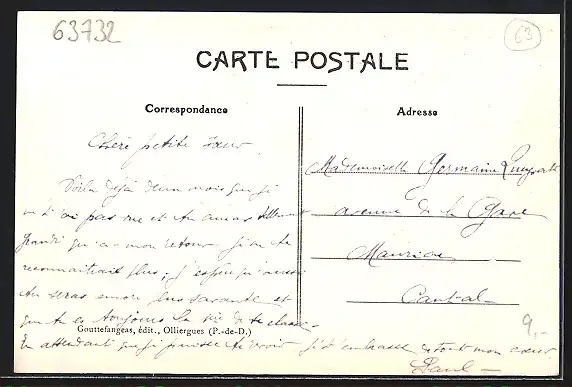 63732
63
CARTE POSTALE
Correspondance
Adresse
Chère petite sœur
Voilà déjà deux mois que je
ne t'ai pas vue et tu auras tellement
grandi qu'à mon retour je ne te
reconnaitrait plus; j'espère qu'aussi
tu seras encore plus savante et
que tu es toujours la de ta classe.
En attendant que je puisse te revoir je t'embrasse de tout mon cœur.
Paul
Mademoiselle Germaine
avenue de la Gare
Mauriac
Cantal
9.-
Gouttefangeas, édit., Olliergues (P.-de-D.)